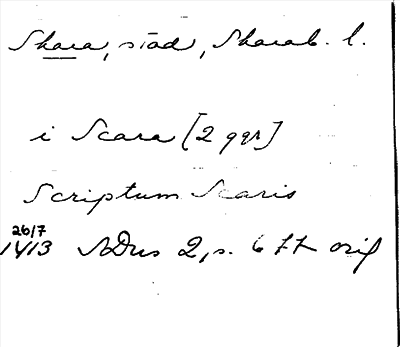 Skara, stad, Skarab. l.
i Scara [2 ggr]
Scriptum Scaris
26/7
1413 SDns 2, s. 677 orig